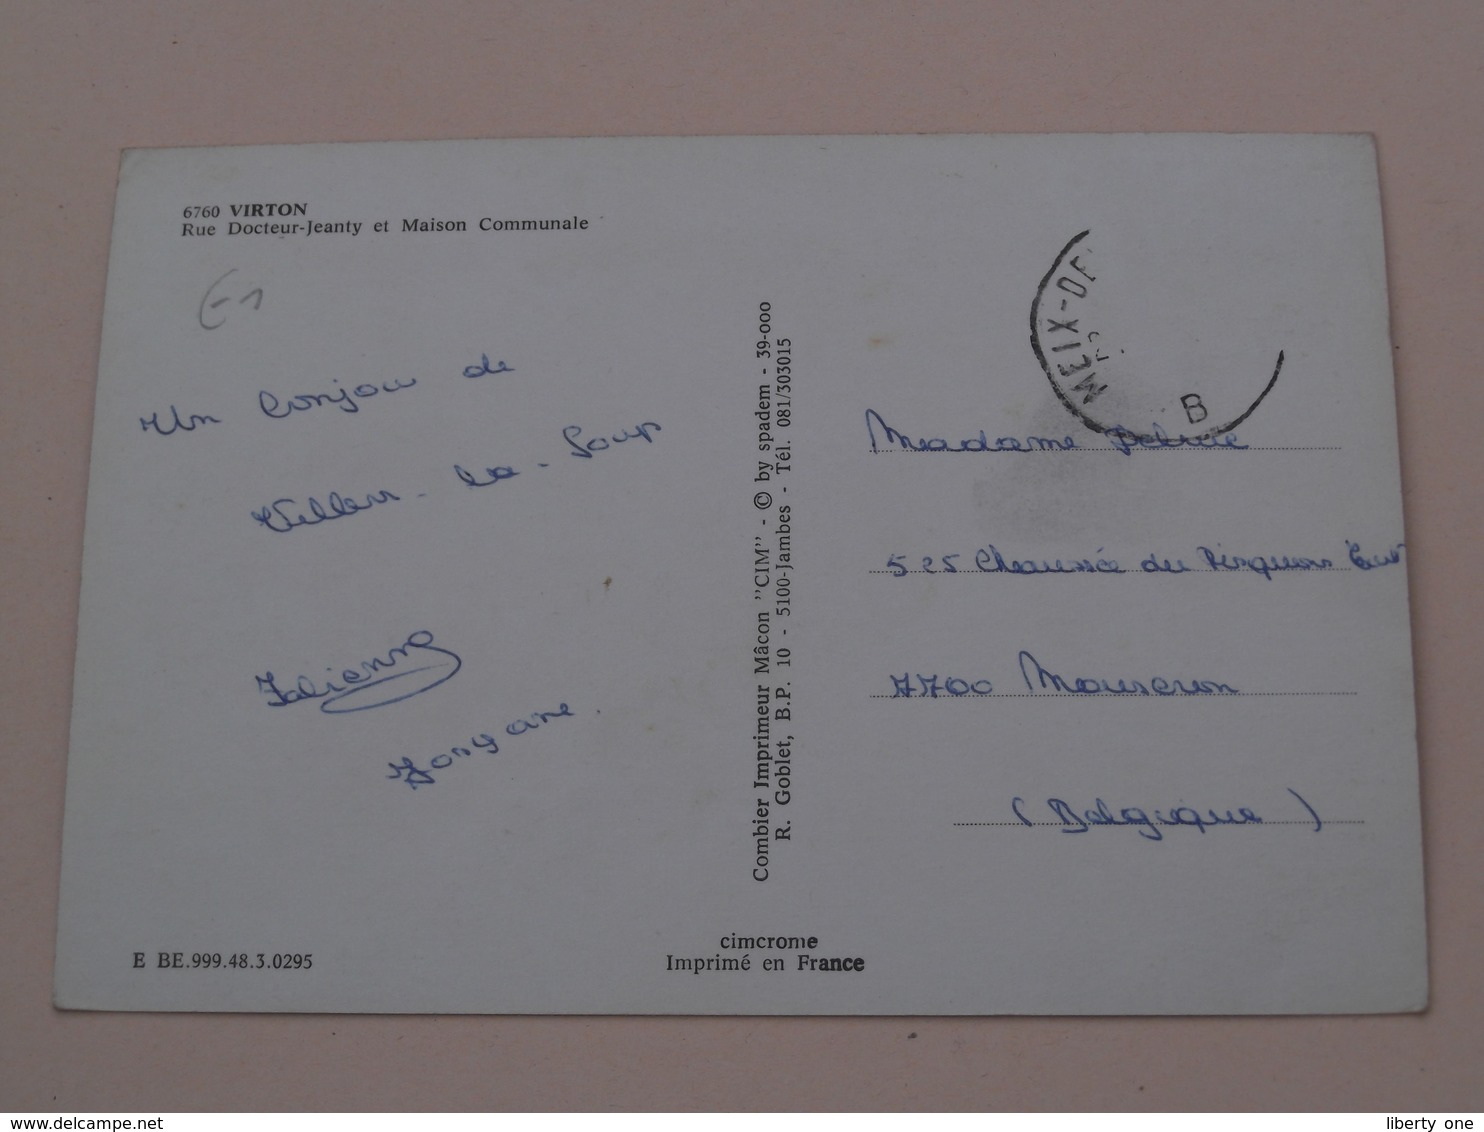 6760 VIRTON
Rue Docteur-Jeanty et Maison Communale
€1
Un bonjour de
Villers-la-Loup
Fabienne
E BE.999.48.3.0295
Combier Imprimeur Mâcon "CIM" - © by spadem - 39-000
R. Goblet, B.P. 10 - 5100-Jambes - Tél. 081/303015
cimcrome
Imprimé en France
MEIX-DE
B
Madame
525 Chaussée du Risquons Tout
7700 Mouscron
(Belgique)
www.delcampe.net
liberty one